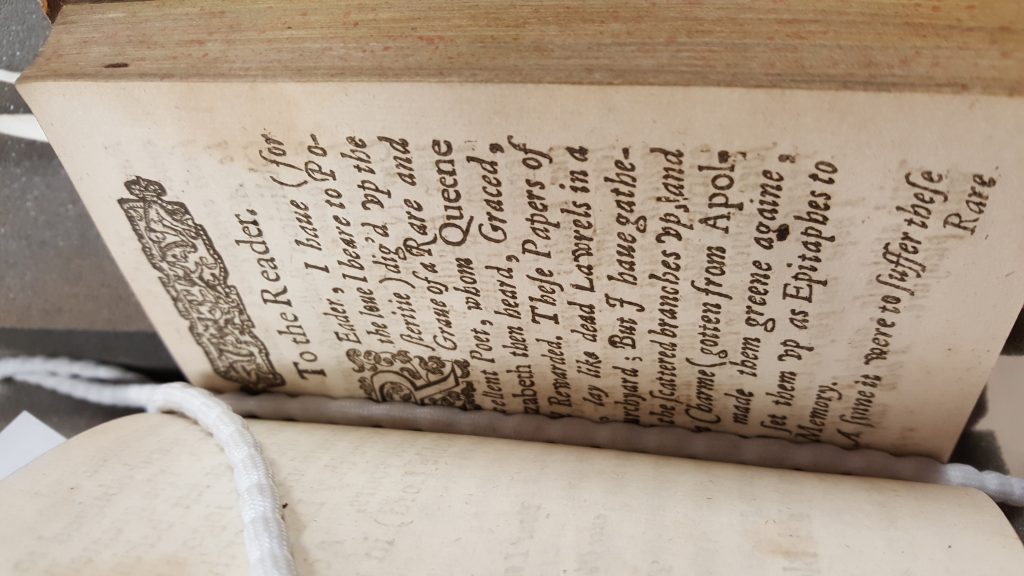 To the Reader.
REader, I haue (for
the loue I beare to Po-
ſteritie) dig'd vp the
Graue of a Rare and
ellent Poet, whom Queene
zabeth then heard, Graced,
Rewarded. Theſe Papers of
lay like dead Lawrels in a
urchyard; But I haue gathe-
the ſcattered branches vp, and
Charme (gotten from Apollo)
made them greene againe,
ſet them vp as Epitaphes to
Memory.
A ſinne it were to ſuffer theſe
Rare